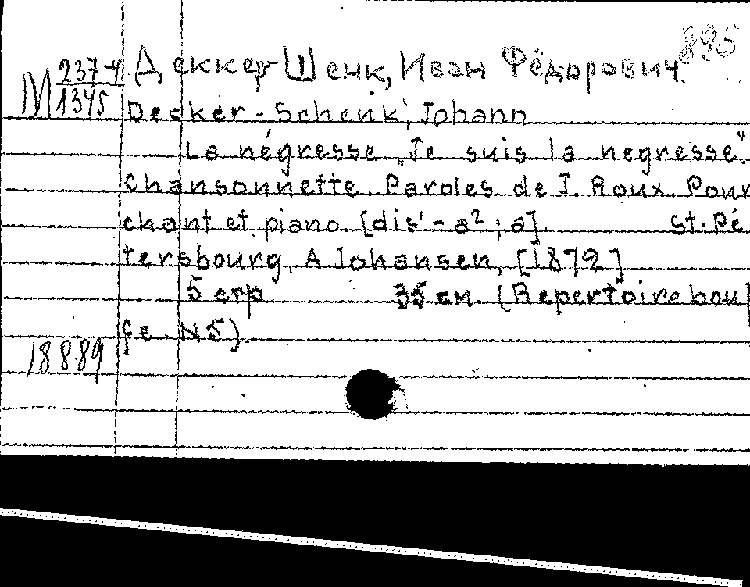 895
М 237-4/1345
Деккер-Шенк, Иван Фёдорович.
Decker-Schenk, Johann
La négresse „Je suis la negresse"
Chansonnette. Paroles de J. Roux. Pour
chant et piano. [dis¹-a²; a]. St.-Pé
tersbourg, A Iohansen, [1872]
5 стр 35 см. (Repertoire bouf
fe. N5).
18889